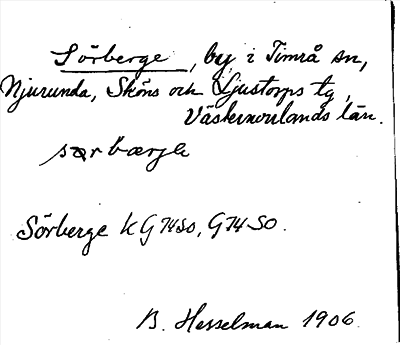 Sörberge, by i Timrå sn,
Njurunda, Sköns och Ljustorps tg,
Västernorrlands län.
Sörberge k G 74 SO, G 74 SO.
B. Hesselman 1906